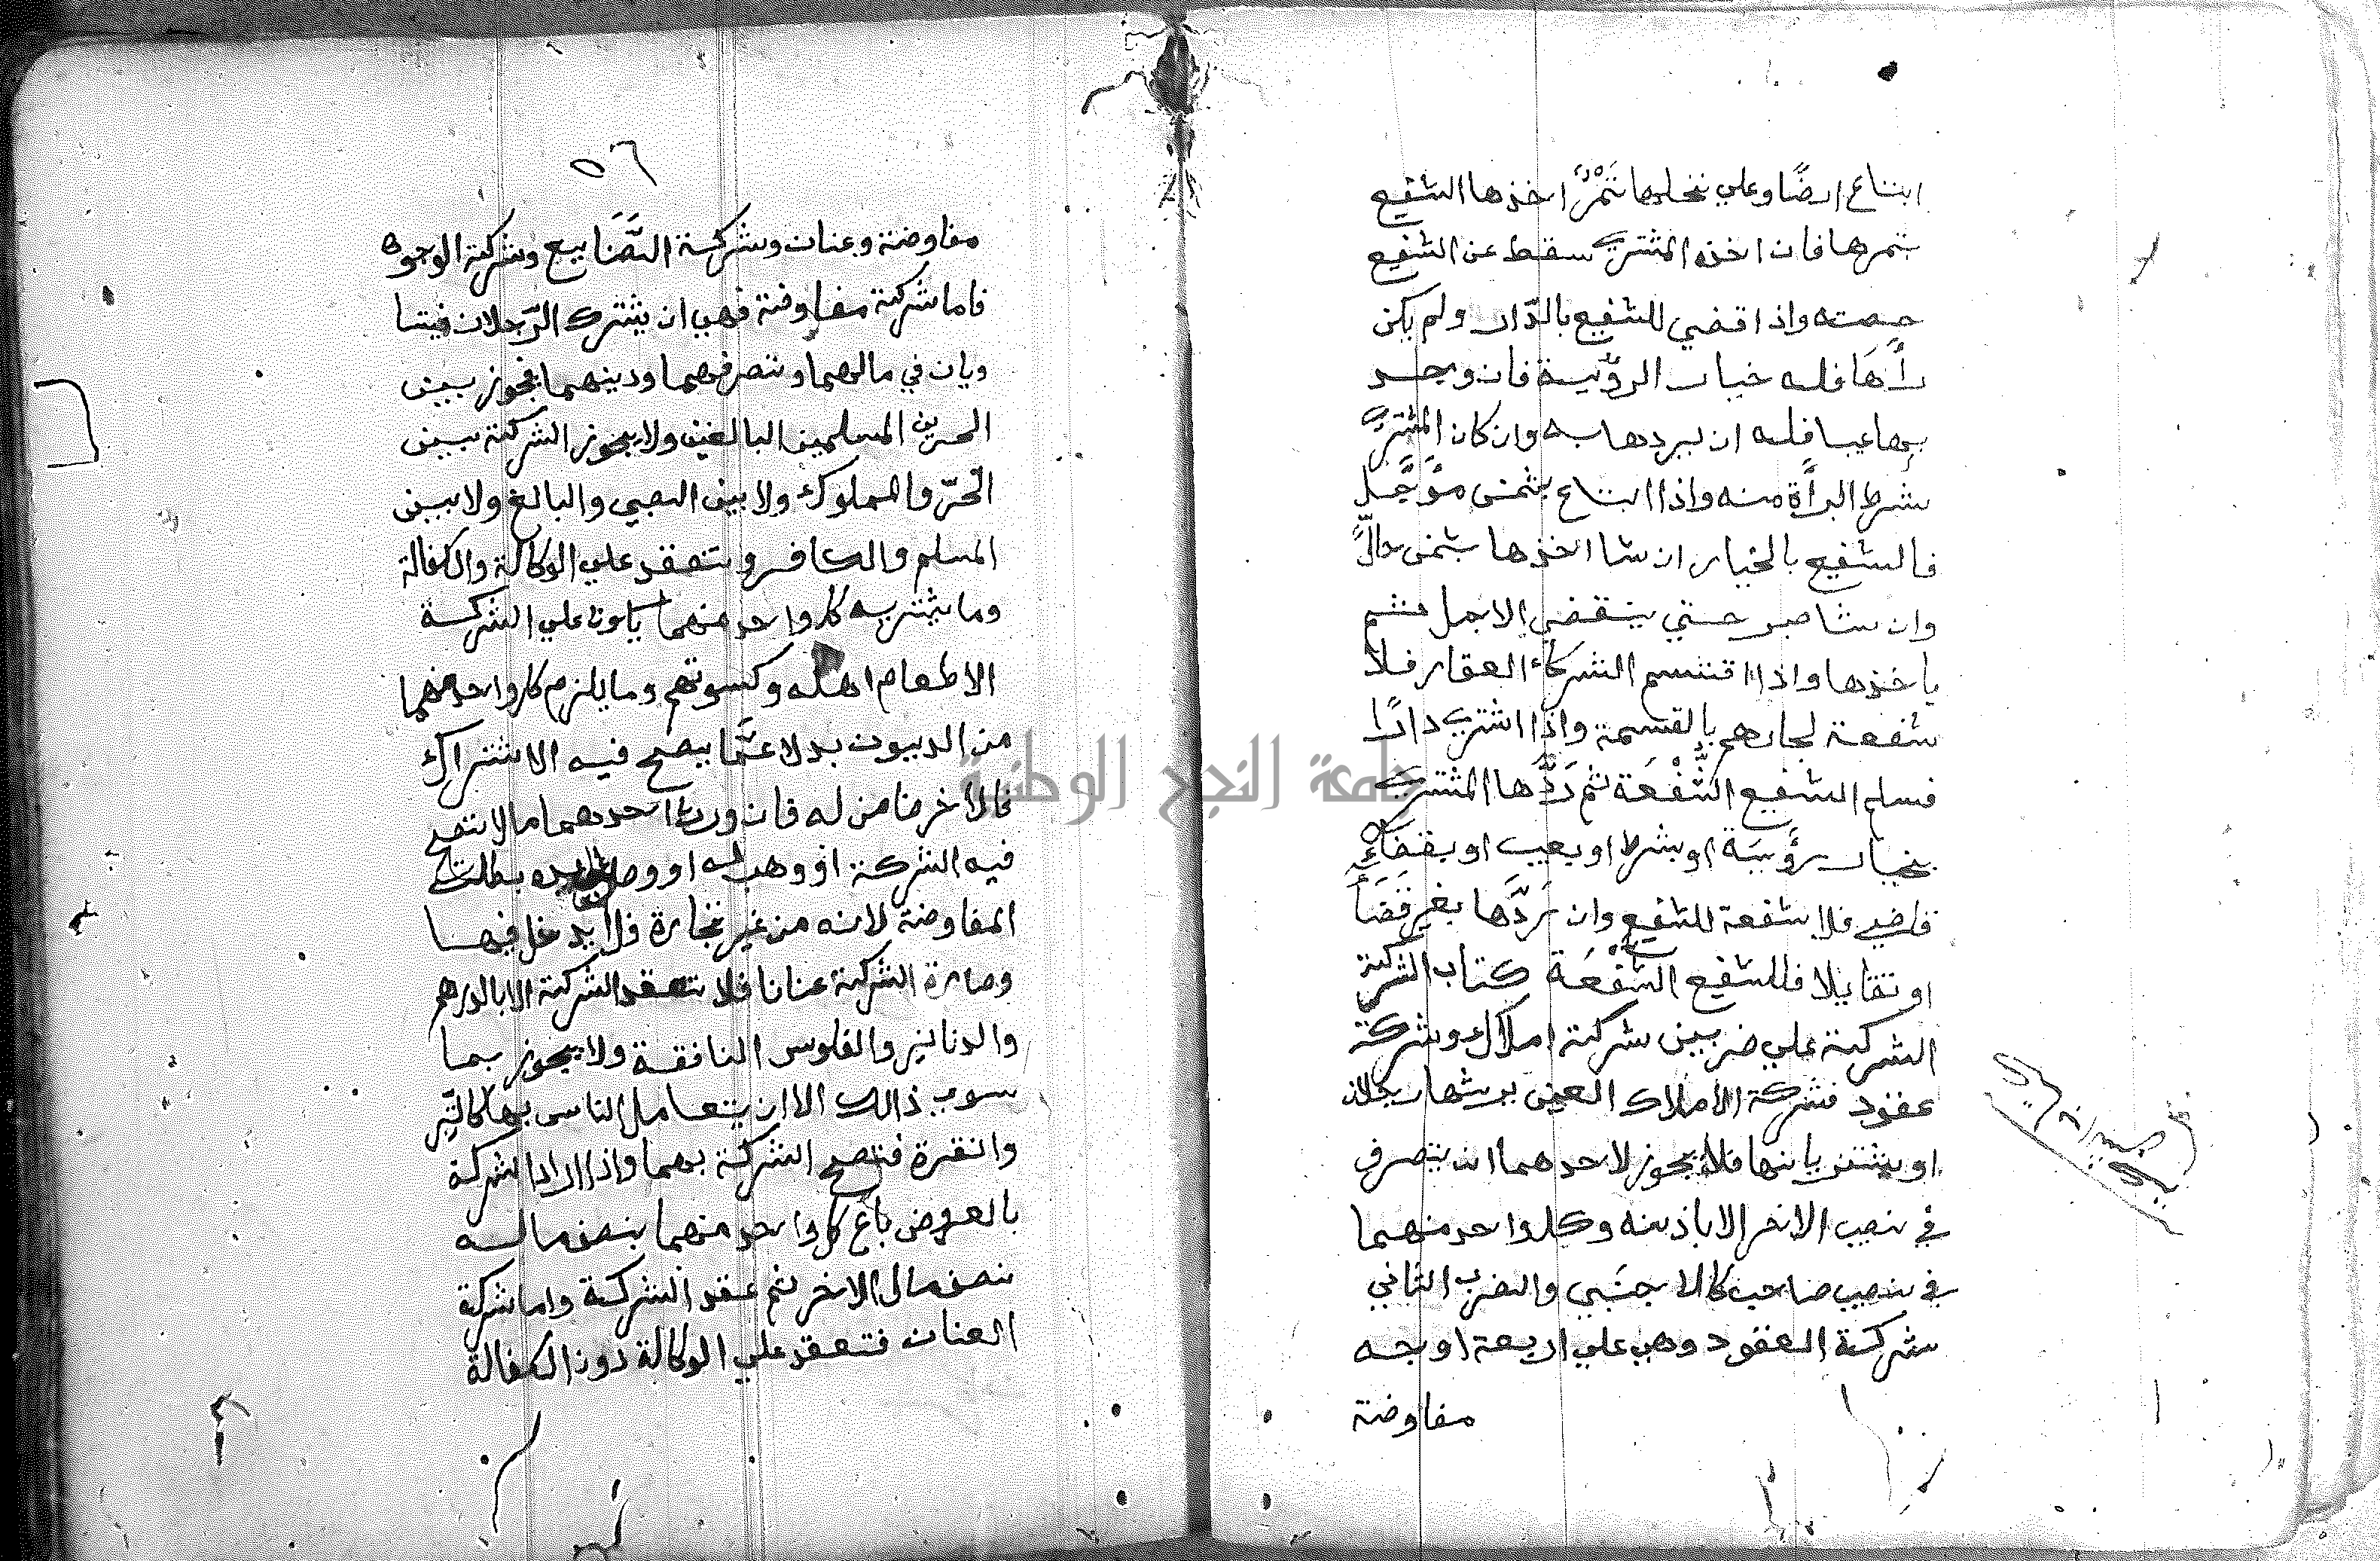 ابتاع ارضًا وعلي نخلها ثَمَرٌ اخذها الشفيع
بثمرها فان اخذه المشتري سقط عن الشفيع
حصته واذا قضي للشفيع بالدّار ولم يكن
رأهَا فله خيار الرؤيية فان وجد
بها عيبا فله ان يردها به وان كان المشتري
شرط البرأة منه واذا ابتاع بثمن مؤجَّلٍ
فالشفيع بالخيار ان شا اخذها بثمن حالٍّ
وان شا صبر حتي ينقضي الاجل ثم
ياخذها واذا اقتسم الشركاء العقار فلا
شفعة لجارهم بالقسمة واذا اشتري دارًا
فسلم الشفيع الشُّفْعَة ثم رَدَّها المشتري
بخيار رؤيَة او بشرط او بعيب او بقضاءِ
قاضي فلا شفعة للشفيع وان رَدَّها بغير قَضَأ
او تقايلا فللشفيع الشُّفْعَة كتاب الشركة
الشركة علي ضربين شركة املاك وشركة
عقود فشركة الاملاك العين يرثها رجلان
او يشتريانها فلا يجوز لاحدهما ان يتصرف
في نصيب الاخر الا باذنه وكل واحد منهما
في نصيب صاحبه كالاجنبي والضرب الثاني
شركة العقود وهي علي اربعة اوجه
مفاوضة
٥٦
مفاوضة وعنان وشركة الصَّنَايع وشركة الوجوه
فاما شركة مفاوضة فهي ان يشترك الرّجلان فيتسا
ويان في مالهما وتصرفهما ودينهما فيجوز بين
الحرين المسلمين البالغين ولا يجوز الشركة بين
الحرّ والمملوك ولا بين الصبي والبالغ ولا بين
المسلم والكافر وتنعقد علي الوكالة والكفالة
وما يشتريه كل واحد منهما يكون علي الشركة
الا طعام اهله وكسوتهم وما يلزم كل واحد منهما
من الديون بدلا عمَّا يصح فيه الاشتراك
فالاخر ضامن له فان ورث احدهما مالا تصح
فيه الشركة او وهب له او وصل يده بطلت
المفاوضة لانه من غير تجارة فلا يدخل فيها
وصارة الشركة عنانا فلا تنعقد الشركة الا بالدرهم
والدنانير والفلوس النافقة ولا يجوز بما
سوي ذالك الا ان يتعامل الناس بها كالتّبر
والنقرة فتصح الشركة بهما واذا اراد الشركة
بالعروض باع كل واحد منهما بنصف ماله
بنصف مال الاخر ثم عقد الشركة واما شركة
العنان فتنعقد علي الوكالة دون الكفالة
جامعة النجاح الوطنية